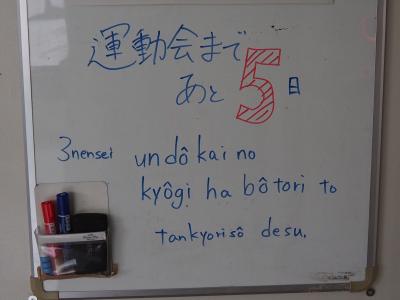 運動会まで
あと5日
3nensei undôkai no
kyôgi ha bôtori to
tankyorisô desu.